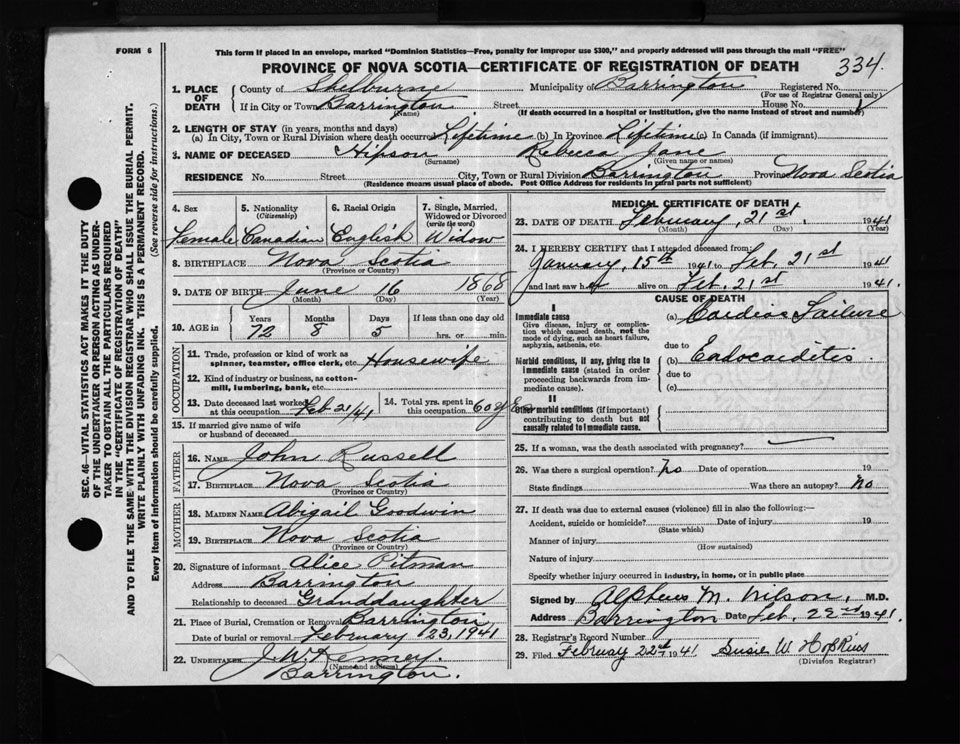 FORM 6
This form if placed in an envelope, marked "Dominion Statistics—Free, penalty for improper use $300," and properly addressed will pass through the mail "FREE"
PROVINCE OF NOVA SCOTIA—CERTIFICATE OF REGISTRATION OF DEATH
334.
SEC. 46—VITAL STATISTICS ACT MAKES IT THE DUTY
OF THE UNDERTAKER OR PERSON ACTING AS UNDER-
TAKER TO OBTAIN ALL THE PARTICULARS REQUIRED
IN THE "CERTIFICATE OF REGISTRATION OF DEATH"
AND TO FILE THE SAME WITH THE DIVISION REGISTRAR WHO SHALL ISSUE THE BURIAL PERMIT.
WRITE PLAINLY WITH UNFADING INK. THIS IS A PERMANENT RECORD.
Every item of Information should be carefully supplied. (See reverse side for instructions.)
1. PLACE OF DEATH
County of Shelburne Municipality of Barrington Registered No.
(For use of Registrar General only)
If in City or Town Barrington Street House No.
(Name) (If death occurred in a hospital or institution, give the name instead of street and number)
2. LENGTH OF STAY (in years, months and days)
(a) In City, Town or Rural Division where death occurred Lifetime (b) In Province Lifetime (c) In Canada (if immigrant)
3. NAME OF DECEASED Hipson Rebecca Jane
(Surname) (Given name or names)
RESIDENCE No. Street City, Town or Rural Division Barrington Province Nova Scotia
(Residence means usual place of abode. Post Office Address for residents in rural parts not sufficient)
4. Sex 5. Nationality (Citizenship) 6. Racial Origin 7. Single, Married, Widowed or Divorced (write the word)
Female Canadian English Widow
8. BIRTHPLACE Nova Scotia
(Province or Country)
9. DATE OF BIRTH June 16 1868
(Month) (Day) (Year)
10. AGE in Years Months Days If less than one day old
72 8 5 hrs. or min.
OCCUPATION
11. Trade, profession or kind of work as spinner, teamster, office clerk, etc. Housewife
12. Kind of industry or business, as cotton-mill, lumbering, bank, etc.
13. Date deceased last worked at this occupation Feb 21/41 14. Total yrs. spent in this occupation 60 yrs
15. If married give name of wife or husband of deceased
FATHER
16. NAME John Russell
17. BIRTHPLACE Nova Scotia
(Province or Country)
MOTHER
18. MAIDEN NAME Abigail Goodwin
19. BIRTHPLACE Nova Scotia
(Province or Country)
20. Signature of informant Alice Pitman
Address Barrington
Relationship to deceased Granddaughter
21. Place of Burial, Cremation or Removal Barrington
Date of burial or removal February 23, 1941
22. UNDERTAKER J. W. Kenney.
(Name and address)
Barrington.
MEDICAL CERTIFICATE OF DEATH
23. DATE OF DEATH February, 21st 1941
(Month) (Day) (Year)
24. I HEREBY CERTIFY that I attended deceased from:
January, 15th 1941 to Feb. 21st 1941
and last saw her alive on Feb. 21st 1941.
CAUSE OF DEATH
I
Immediate cause
Give disease, injury or complication which caused death, not the mode of dying, such as heart failure, asphyxia, asthenia, etc.
(a) Cardiac Failure
due to
Morbid conditions, if any, giving rise to immediate cause (stated in order proceeding backwards from immediate cause).
(b) Endocarditis.
due to
(c)
II
Other morbid conditions (if important) contributing to death but not causally related to immediate cause.
25. If a woman, was the death associated with pregnancy?
26. Was there a surgical operation? no Date of operation 19
State findings Was there an autopsy? no
27. If death was due to external causes (violence) fill in also the following:—
Accident, suicide or homicide? Date of injury 19
(State which)
Manner of injury
(How sustained)
Nature of injury
Specify whether injury occurred in industry, in home, or in public place
Signed by Alpheus M. Wilson, M.D.
Address Barrington Date Feb. 22nd 1941.
28. Registrar's Record Number
29. Filed February 22nd 1941 Susie W Hopkins
(Division Registrar)